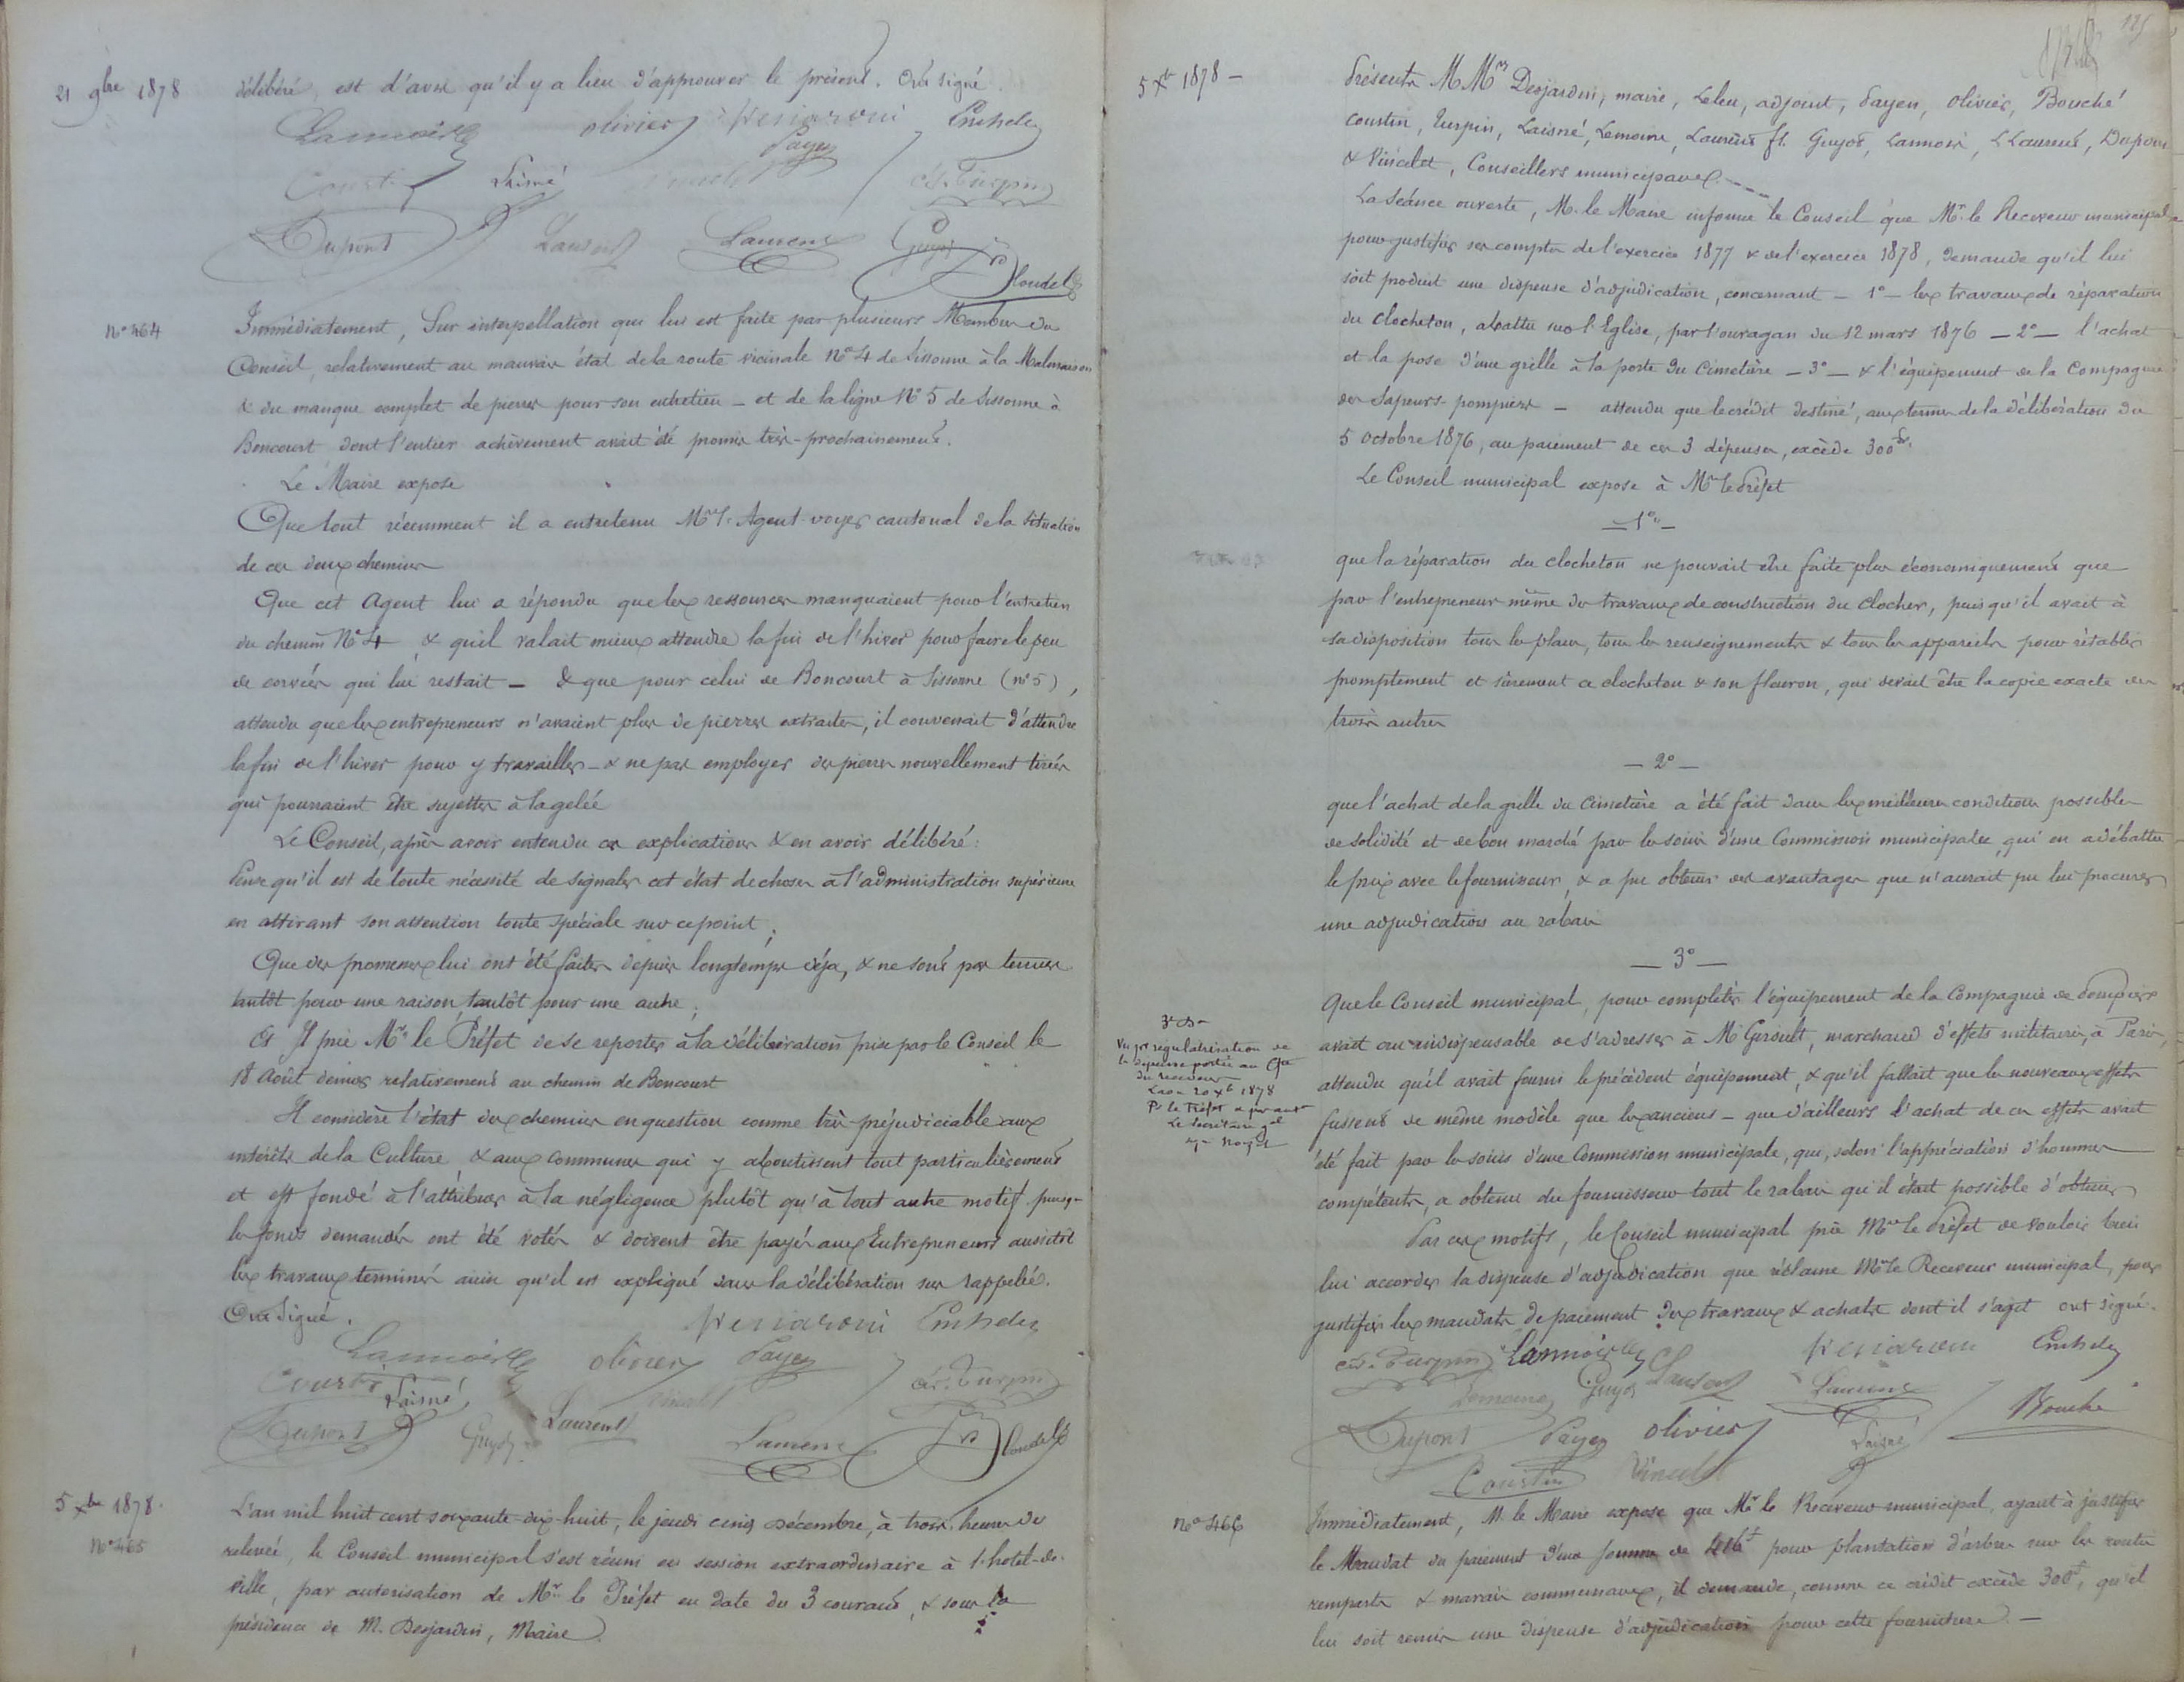 21 9bre 1878
délibéré, est d'avis qu'il y a lieu d'approuver le présent. Ont signé.
Lannois olivier
Payen
Courtin Laisné Ch. Turpin
Dupont Laurent Laurent Guyot
No 464
Immédiatement, Sur interpellation qui lui est faite par plusieurs Membres du
Conseil, relativement au mauvais état de la route vicinale No 4 de Sissonne à la Malmaison
& du manque complet de pierres pour son entretien _ et de la ligne No 5 de Sissonne à
Boncourt dont l'entier achèvement avait été promis très-prochainement.
Le Maire expose
Que tout récemment il a entretenu Mr l'Agent-voyer cantonal de la situation
de ces deux chemins
Que cet Agent lui a répondu que les ressources manquaient pour l'entretien
du chemin No 4, & qu'il valait mieux attendre la fin de l'hiver pour faire le peu
de corvées qui lui restait _ & que pour celui de Boncourt à Sissonne (no 5),
attendu que les entrepreneurs n'avaient plus de pierres extraites, il convenait d'attendre
la fin de l'hiver pour y travailler _ & ne pas employer des pierres nouvellement tirées
qui pourraient être sujettes à la gelée
Le Conseil, après avoir entendu ces explications & en avoir délibéré:
Pense qu'il est de toute nécessité de signaler cet état de choses à l'administration supérieure
en attirant son attention toute spéciale sur ce point;
Que des promesses lui ont été faites depuis longtemps déja, & ne sont pas tenues
tantôt pour une raison, tantôt pour une autre;
Et Il prie Mr le Préfet de se reporter à la délibération prise par le Conseil le
18 Août dernier relativement au chemin de Boncourt
Il considère l'état des chemins en question comme très-préjudiciable aux
intérêts de la Culture, & aux communes qui y aboutissent tout particulièrement
et est fondé à l'attribuer à la négligence plutôt qu'à tout autre motif puisq-
les fonds demandés ont été votés & doivent être payés aux Entrepreneurs aussitôt
les travaux terminés ainsi qu'il est expliqué dans la délibération sus rappelée.
Ont signé.
Lannois olivier Payen
Courtin Laisné Ch. Turpin
Dupont Guyot Laurent Laurent
5 Xbre 1878.
No 465
L'an mil huit cent soixante-dix-huit, le jeudi cinq Décembre, à trois heures de
relevée, le Conseil municipal s'est réuni en session extraordinaire à l'hotel-de-
ville, par autorisation de Mr le Préfet en date du 3 courant, & sous la
présidence de M. Desjardin, Maire.
125
5 Xbre 1878 _
Présents MMrs Desjardin, maire, Leleu, adjoint, Payen, olivier, Bouché
Courtin, Turpin, Laisné, Lemoine, Laurent ft. Guyot, Lannois, L Laurent, Dupont
& Vincelet, Conseillers municipaux.
La Séance ouverte, M. le Maire informe le Conseil que Mr. le Receveur municipal
pour justifier ses comptes de l'exercice 1877 & de l'exercice 1878, demande qu'il lui
soit produit une dispense d'adjudication, concernant _ 1o _ les travaux de réparation
du clocheton, abattu sur l'Eglise, par l'ouragan du 12 mars 1876 _ 2o _ l'achat
et la pose d'une grille à la porte du Cimetière _ 3o _ & l'équipement de la Compagnie
des Sapeurs-pompiers _ attendu que le crédit destiné, aux termes de la délibération du
5 octobre 1876, au paiement de ces 3 dépenses, excède 300 fr.
Le Conseil municipal expose à Mr le Préfet
_ 1o _
que la réparation du clocheton ne pouvait être faite plus économiquement que
par l'entrepreneur même des travaux de construction du clocher, puisqu'il avait à
sa disposition tous les plans, tous les renseignements & tous les appareils pour rétablir
promptement et sûrement ce clocheton & son fleuron, qui devait être la copie exacte des
trois autres
_ 2o _
que l'achat de la grille du Cimetière a été fait dans les meilleures conditions possibles
de solidité et de bon marché par les soins d'une Commission municipale, qui en a débattu
le prix avec le fournisseur, & a pu obtenir des avantages que n'aurait pu lui procurer
une adjudication au rabais
_ 3o _
Que le Conseil municipal, pour compléter l'équipement de la Compagnie de Pompiers
avait cru indispensable de s'adresser à Mr Girault, marchand d'effets militaires, à Paris,
attendu qu'il avait fourni le précédent équipement, & qu'il fallait que les nouveaux effets
fussent de même modèle que les anciens _ que d'ailleurs l'achat de ces effets avait
été fait par les soins d'une Commission municipale, qui, selon l'appréciation d'hommes
compétents, a obtenu du fournisseur tout le rabais qu'il était possible d'obtenir
Par ces motifs, le Conseil municipal prie Mr le Préfet de vouloir bien
lui accorder la dispense d'adjudication que réclame Mr le Receveur municipal, pour
justifier les mandats de paiement des travaux & achats dont il s'agit ont signé.
Vu pr régularisation de
la dépense portée au Cpte
du receveur
Laon 20 Xbre 1878
Pr le Préfet
Le Secrétaire gal
Ch. Turpin Lannois
Lemoine Guyot Laurent Laurent
Dupont Payen olivier Laisné Bouché
Courtin Vincelet
No 466
Immédiatement, M. le Maire expose que Mr le Receveur municipal, ayant à justifier
le Mandat du paiement d'une somme de 416f pour plantation d'arbres sur les routes
remparts & marais communaux, il demande, comme ce crédit excède 300f, qu'il
lui soit remis une dispense d'adjudication pour cette fourniture. _